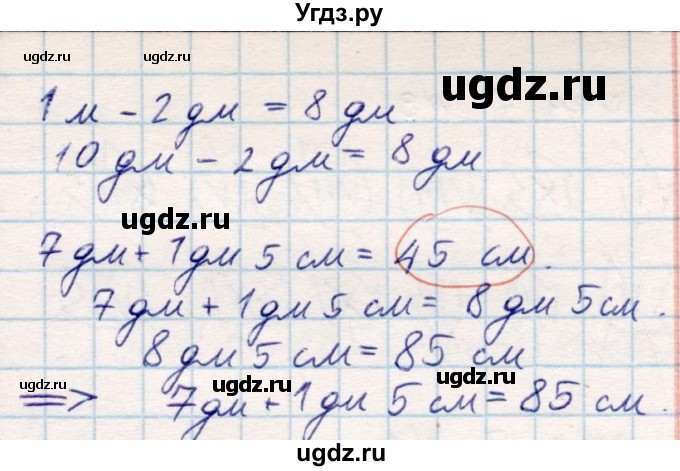 Угдз.ру
ugdz.ru ugdz.ru
ugdz.ru
1 м - 2 дм = 8 дм
10 дм - 2 дм = 8 дм
ugdz.ru
7 дм + 1 дм 5 см = 45 см.
7 дм + 1 дм 5 см = 8 дм 5 см.
8 дм 5 см = 85 см
ugdz.ru ugdz.ru
=> 7 дм + 1 дм 5 см = 85 см.
ugdz.ru ugdz.ru ugdz.ru